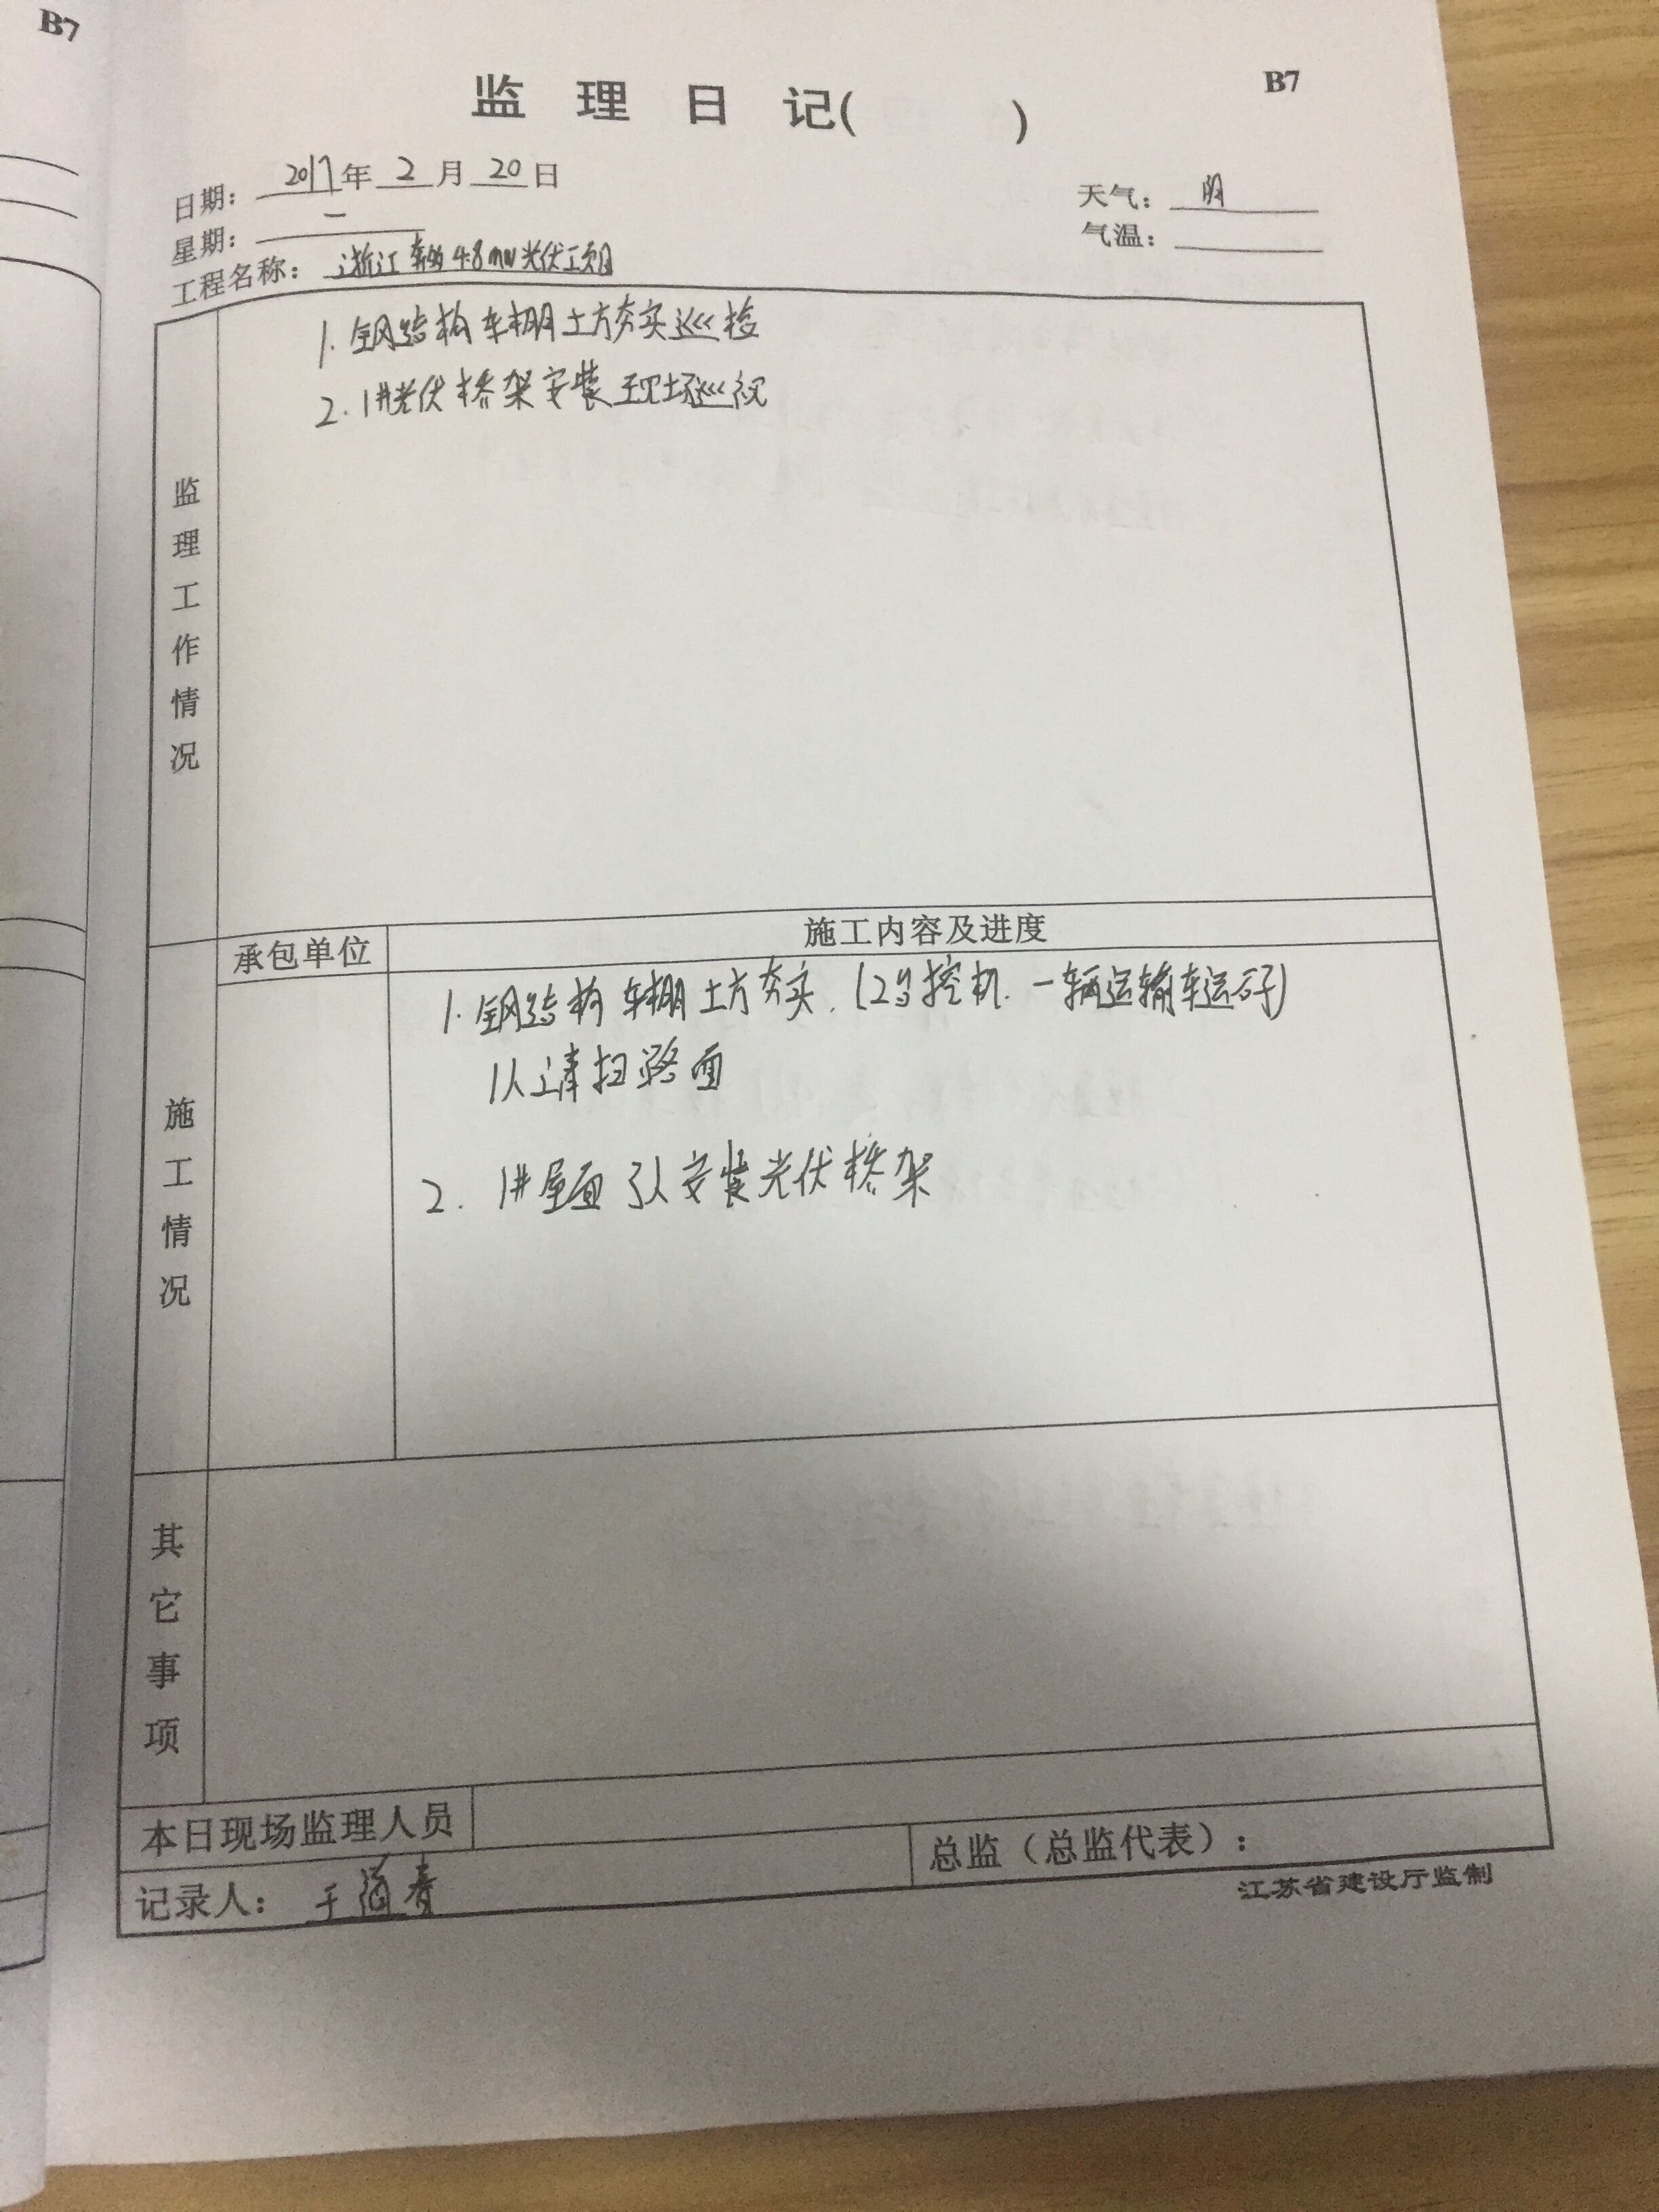 B7
B7
监理日记(　　)
日期：2017年2月20日
天气：阴
星期：一
气温：
工程名称：浙江 4.8MW光伏项目
监理工作情况
1. 钢结构车棚土方夯实巡检
2. 1#光伏桥架安装现场巡视
承包单位
施工内容及进度
施工情况
1. 钢结构车棚土方夯实.(2台挖机.一辆运输车运石子)
1人清扫路面
2. 1#屋面 3人安装光伏桥架
其它事项
本日现场监理人员
总监（总监代表）：
记录人：
江苏省建设厅监制